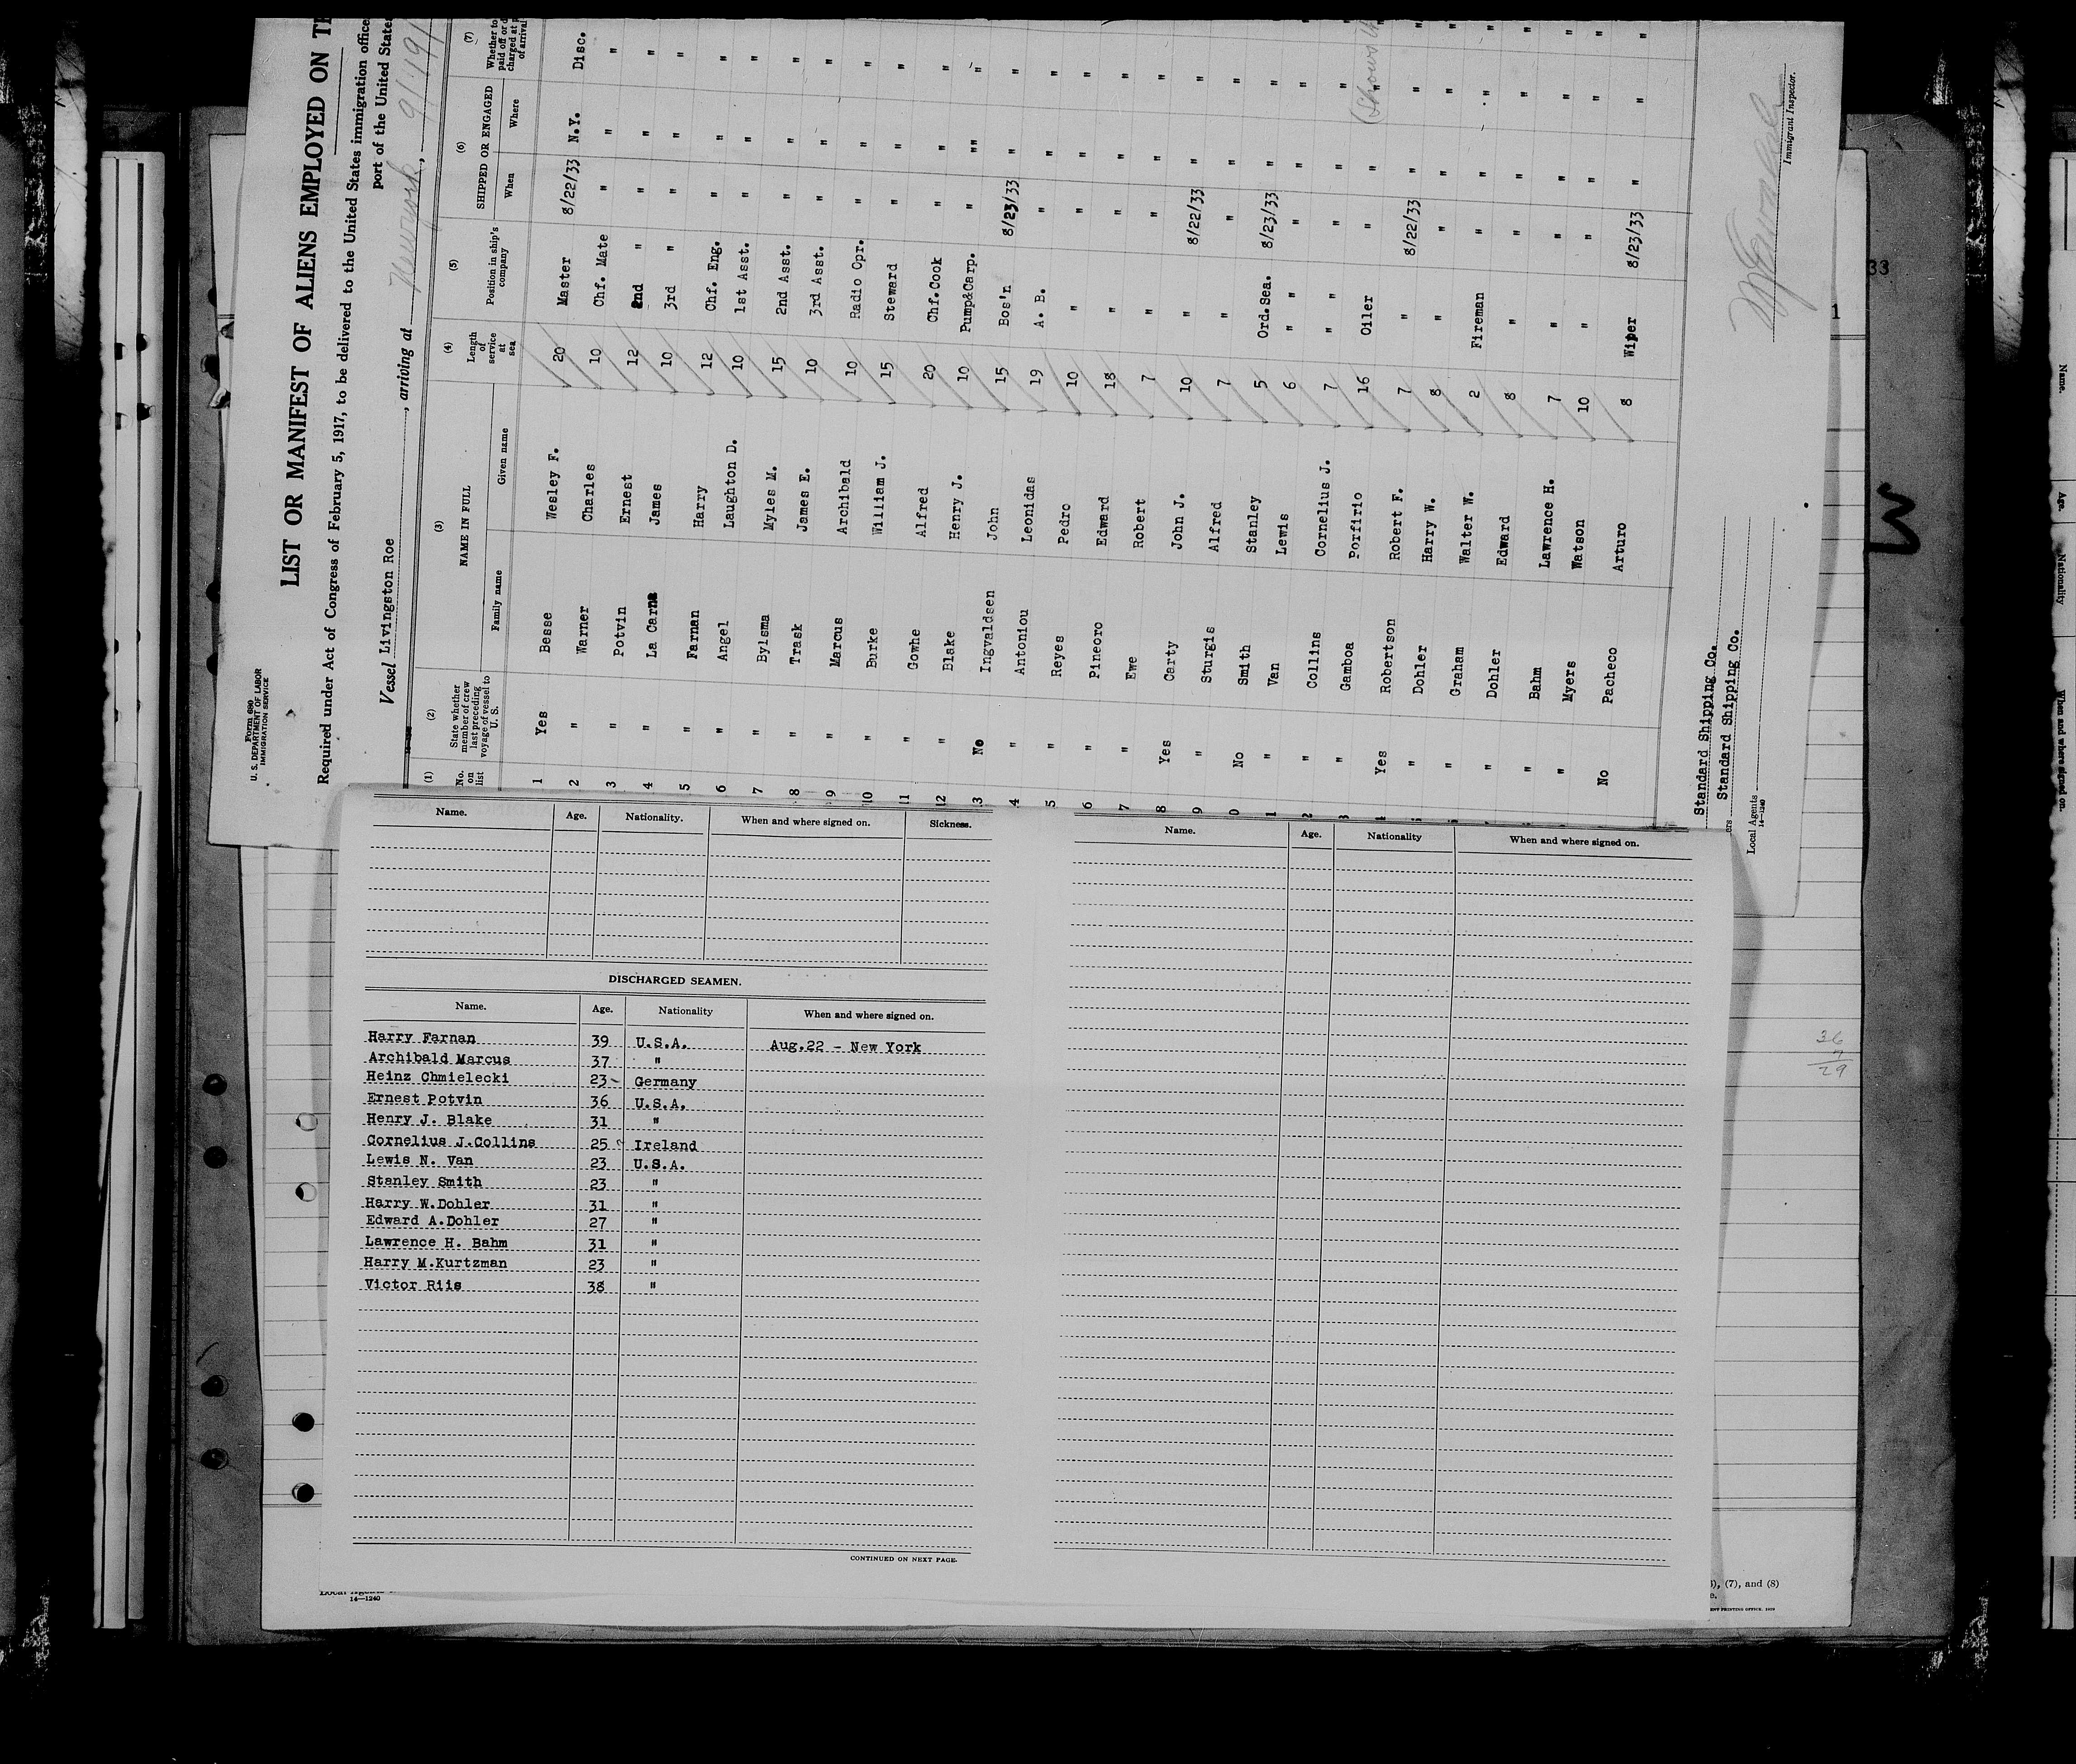 Form 680
U. S. DEPARTMENT OF LABOR
IMMIGRATION SERVICE
LIST OR MANIFEST OF ALIENS EMPLOYED ON
Required under Act of Congress of February 5, 1917, to be delivered to the United States immigration
port of the United
Vessel Livingston Roe, arriving at Newyork, 9/1 191
(1) (2) (3) (4) (5) (6) (7)
No. on list State whether member of crew last preceding voyage of vessel to U. S. NAME IN FULL Length of service at sea Position in ship's company SHIPPED OR ENGAGED Whether to
Family name Given name When Where
1 Yes Besse Wesley F. 20 Master 8/22/33 N.Y. Disc.
2 " Warner Charles 10 Chf. Mate " " "
3 " Potvin Ernest 12 2nd " " " "
4 " La Carna James 10 3rd " " " "
5 " Farnan Harry 12 Chf. Eng. " " "
6 " Angel Laughton D. 10 1st Asst. " " "
7 " Bylsma Myles M. 15 2nd Asst. " " "
8 " Trask James E. 10 3rd Asst. " " "
9 " Marcus Archibald 10 Radio Opr. " " "
10 " Burke William J. 15 Steward " " "
11 " Gowhe Alfred 20 Chf.Cook " " "
12 " Blake Henry J. 10 Pump&Carp. " "" "
3 No Ingvaldsen John 15 Bos'n 8/23/33 " "
4 " Antoniou Leonidas 19 A. B. " " "
5 " Reyes Pedro 10 " " " "
6 " Pineoro Edward 18 " " " "
7 " Ewe Robert 7 " " " "
8 Yes Carty John J. 10 " 8/22/33 " "
9 " Sturgis Alfred 7 " " " "
0 No Smith Stanley 5 Ord.Sea. 8/23/33 " "
1 " Van Lewis 6 " " " "
2 " Collins Cornelius J. 7 " " " "
3 " Gamboa Porfirio 16 Oiler " " "
Yes Robertson Robert F. 7 " 8/22/33 " "
" Dohler Harry W. 8 " " " "
" Graham Walter W. 2 Fireman " " "
" Dohler Edward 8 " " " "
" Bahm Lawrence H. 7 " " " "
" Myers Watson 10 " " " "
No Pacheco Arturo 8 Wiper 8/23/33 " "
Standard Shipping Co.
ers Standard Shipping Co.
Local Agents
14—1240
Immigrant Inspector.
33
1
Name. Age. Nationality. When and where signed on. Sickness.
DISCHARGED SEAMEN.
Name. Age. Nationality When and where signed on.
Harry Farnan 39 U.S.A. Aug.22 - New York
Archibald Marcus 37 "
Heinz Chmielecki 23 Germany
Ernest Potvin 36 U.S.A.
Henry J. Blake 31 "
Cornelius J.Collins 25 Ireland
Lewis N. Van 23 U.S.A.
Stanley Smith 23 "
Harry W.Dohler 31 "
Edward A.Dohler 27 "
Lawrence H. Bahm 31 "
Harry M.Kurtzman 23 "
Victor Riis 38 "
CONTINUED ON NEXT PAGE.
Name. Age. Nationality When and where signed on.
36
7
29
14—1240
(7), and (8)
Name. Age. Nationality When and where signed on.